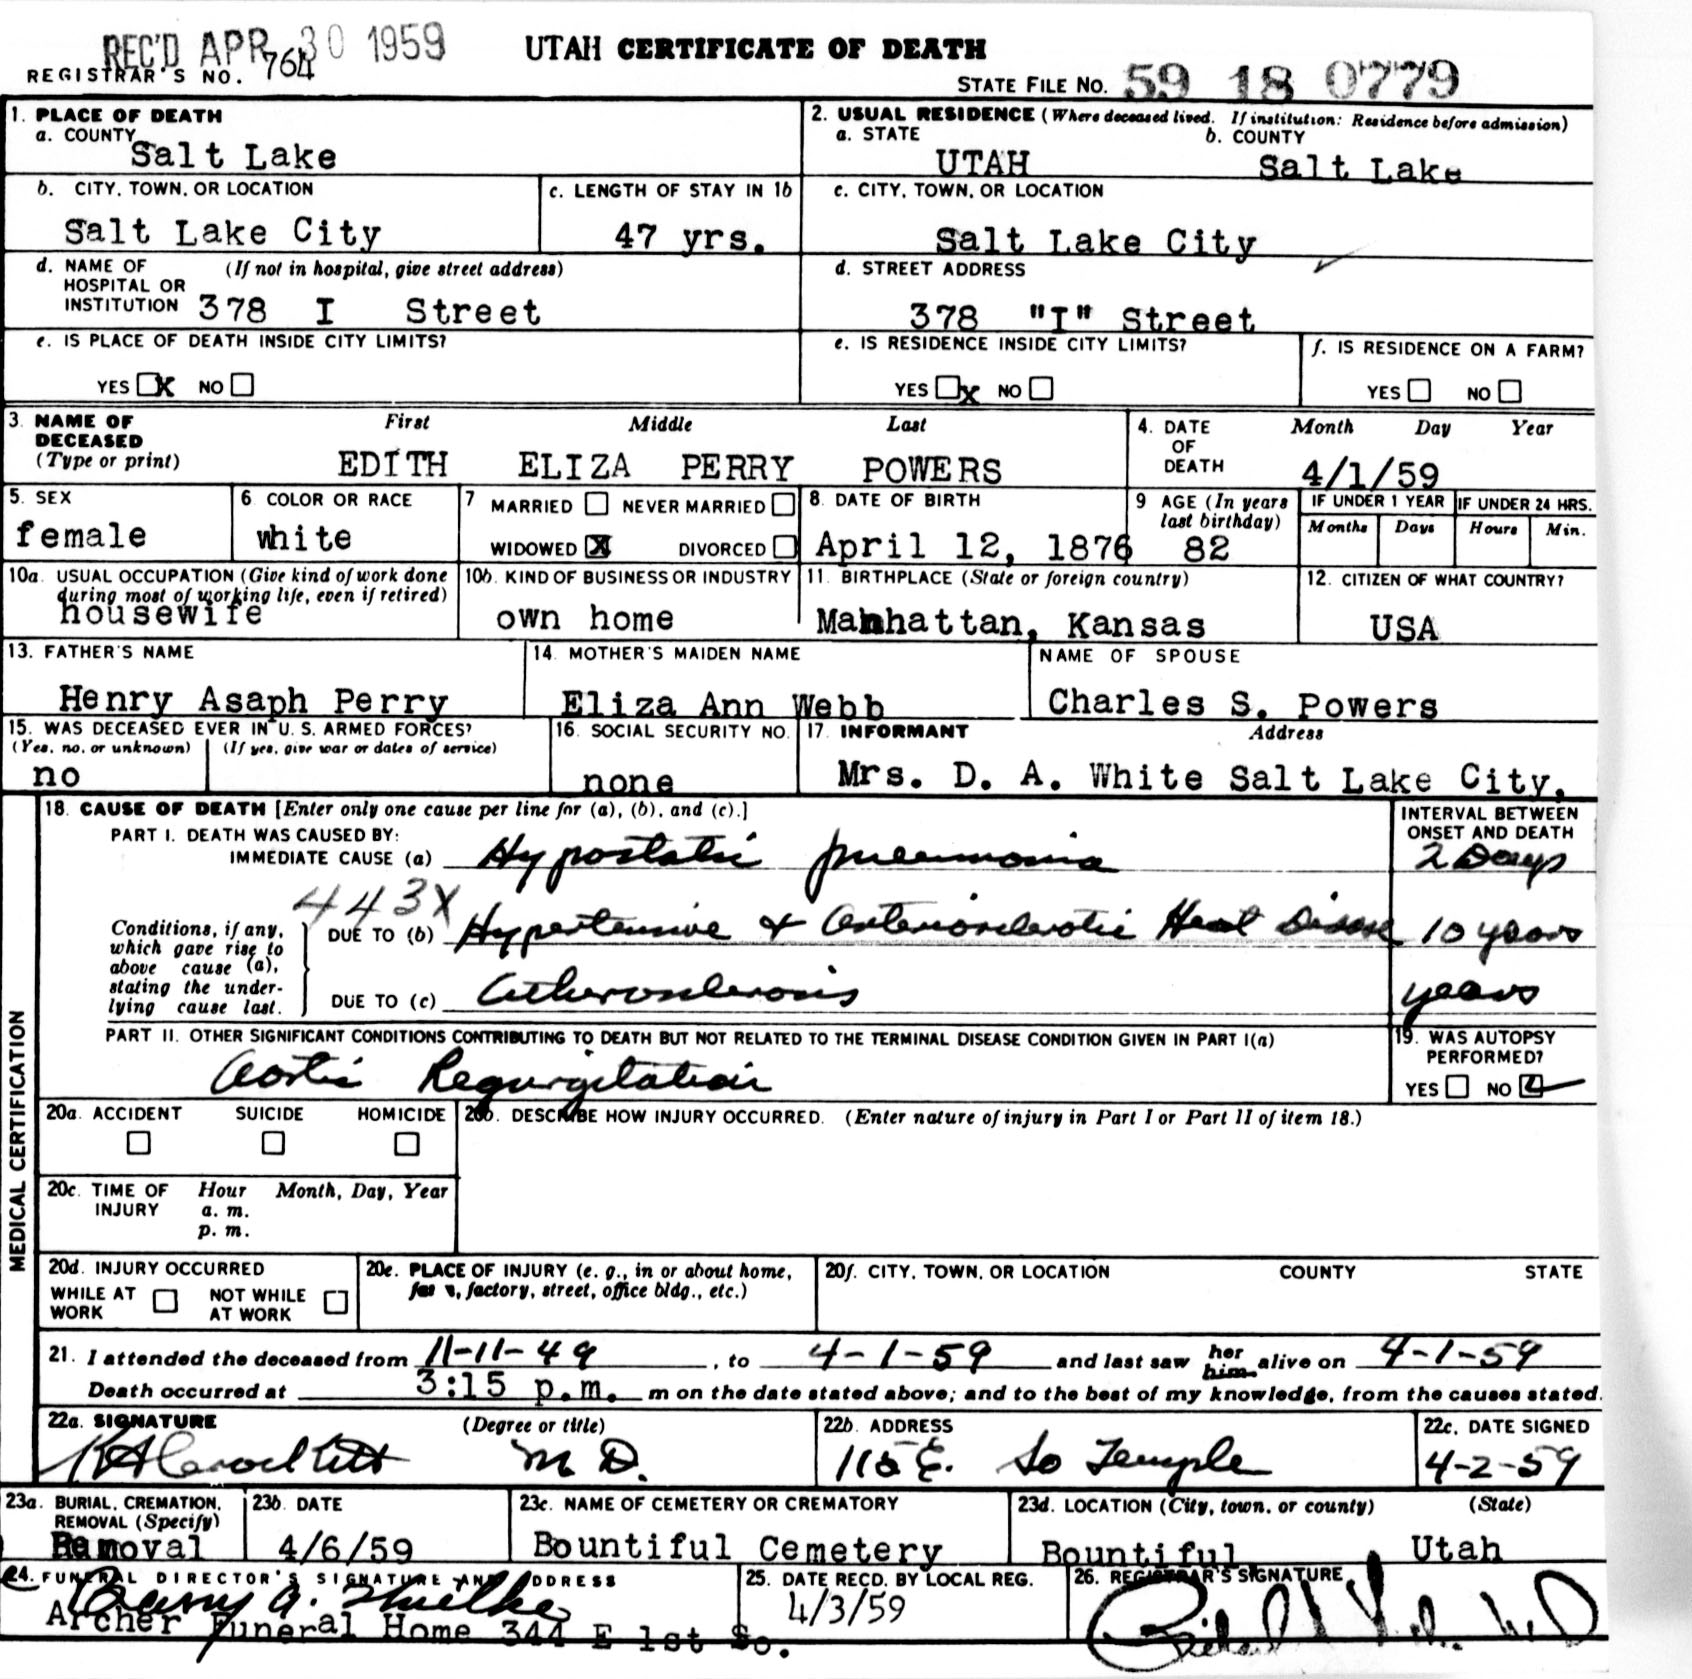 REC'D APR 30 1959
UTAH CERTIFICATE OF DEATH
REGISTRAR'S NO. 764
STATE FILE NO. 59 18 0779
1. PLACE OF DEATH
a. COUNTY
Salt Lake
2. USUAL RESIDENCE (Where deceased lived. If institution: Residence before admission)
a. STATE b. COUNTY
UTAH Salt Lake
b. CITY, TOWN, OR LOCATION
Salt Lake City
c. LENGTH OF STAY IN 1b
47 yrs.
c. CITY, TOWN, OR LOCATION
Salt Lake City
d. NAME OF HOSPITAL OR INSTITUTION (If not in hospital, give street address)
378 I Street
d. STREET ADDRESS
378 "I" Street
e. IS PLACE OF DEATH INSIDE CITY LIMITS?
YES X NO
e. IS RESIDENCE INSIDE CITY LIMITS?
YES X NO
f. IS RESIDENCE ON A FARM?
YES NO
3. NAME OF DECEASED (Type or print)
First Middle Last
EDITH ELIZA PERRY POWERS
4. DATE OF DEATH
Month Day Year
4/1/59
5. SEX
female
6. COLOR OR RACE
white
7 MARRIED NEVER MARRIED
WIDOWED X DIVORCED
8. DATE OF BIRTH
April 12, 1876
9 AGE (In years last birthday)
82
IF UNDER 1 YEAR IF UNDER 24 HRS.
Months Days Hours Min.
10a. USUAL OCCUPATION (Give kind of work done during most of working life, even if retired)
housewife
10b. KIND OF BUSINESS OR INDUSTRY
own home
11. BIRTHPLACE (State or foreign country)
Manhattan, Kansas
12. CITIZEN OF WHAT COUNTRY?
USA
13. FATHER'S NAME
Henry Asaph Perry
14. MOTHER'S MAIDEN NAME
Eliza Ann Webb
NAME OF SPOUSE
Charles S. Powers
15. WAS DECEASED EVER IN U. S. ARMED FORCES?
(Yes, no, or unknown) (If yes, give war or dates of service)
no
16. SOCIAL SECURITY NO.
none
17. INFORMANT Address
Mrs. D. A. White Salt Lake City,
MEDICAL CERTIFICATION
18. CAUSE OF DEATH [Enter only one cause per line for (a), (b), and (c).]
INTERVAL BETWEEN ONSET AND DEATH
PART I. DEATH WAS CAUSED BY:
IMMEDIATE CAUSE (a) Hypostatic pneumonia 2 Days
443X
Conditions, if any, which gave rise to above cause (a), stating the underlying cause last.
DUE TO (b) Hypertensive & arteriosclerotic Heart Disease 10 years
DUE TO (c) Atherosclerosis years
PART II. OTHER SIGNIFICANT CONDITIONS CONTRIBUTING TO DEATH BUT NOT RELATED TO THE TERMINAL DISEASE CONDITION GIVEN IN PART I(a)
Aortic Regurgitation
19. WAS AUTOPSY PERFORMED?
YES NO
20a. ACCIDENT SUICIDE HOMICIDE
20b. DESCRIBE HOW INJURY OCCURRED. (Enter nature of injury in Part I or Part II of item 18.)
20c. TIME OF INJURY Hour Month, Day, Year
a. m.
p. m.
20d. INJURY OCCURRED
WHILE AT WORK NOT WHILE AT WORK
20e. PLACE OF INJURY (e. g., in or about home, farm, factory, street, office bldg., etc.)
20f. CITY, TOWN, OR LOCATION COUNTY STATE
21. I attended the deceased from 11-11-49, to 4-1-59 and last saw her him alive on 4-1-59
Death occurred at 3:15 p.m. m on the date stated above; and to the best of my knowledge, from the causes stated.
22a. SIGNATURE (Degree or title)
Crockett M D.
22b. ADDRESS
115 E. So Temple
22c. DATE SIGNED
4-2-59
23a. BURIAL, CREMATION, REMOVAL (Specify)
Removal
23b. DATE
4/6/59
23c. NAME OF CEMETERY OR CREMATORY
Bountiful Cemetery
23d. LOCATION (City, town, or county) (State)
Bountiful, Utah
24. FUNERAL DIRECTOR'S SIGNATURE AND ADDRESS
Archer Funeral Home 344 E 1st So.
25. DATE RECD. BY LOCAL REG.
4/3/59
26. REGISTRAR'S SIGNATURE